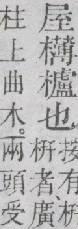 屋欂櫨也
按有枅
枅者、廣
柱上曲木。兩頭受